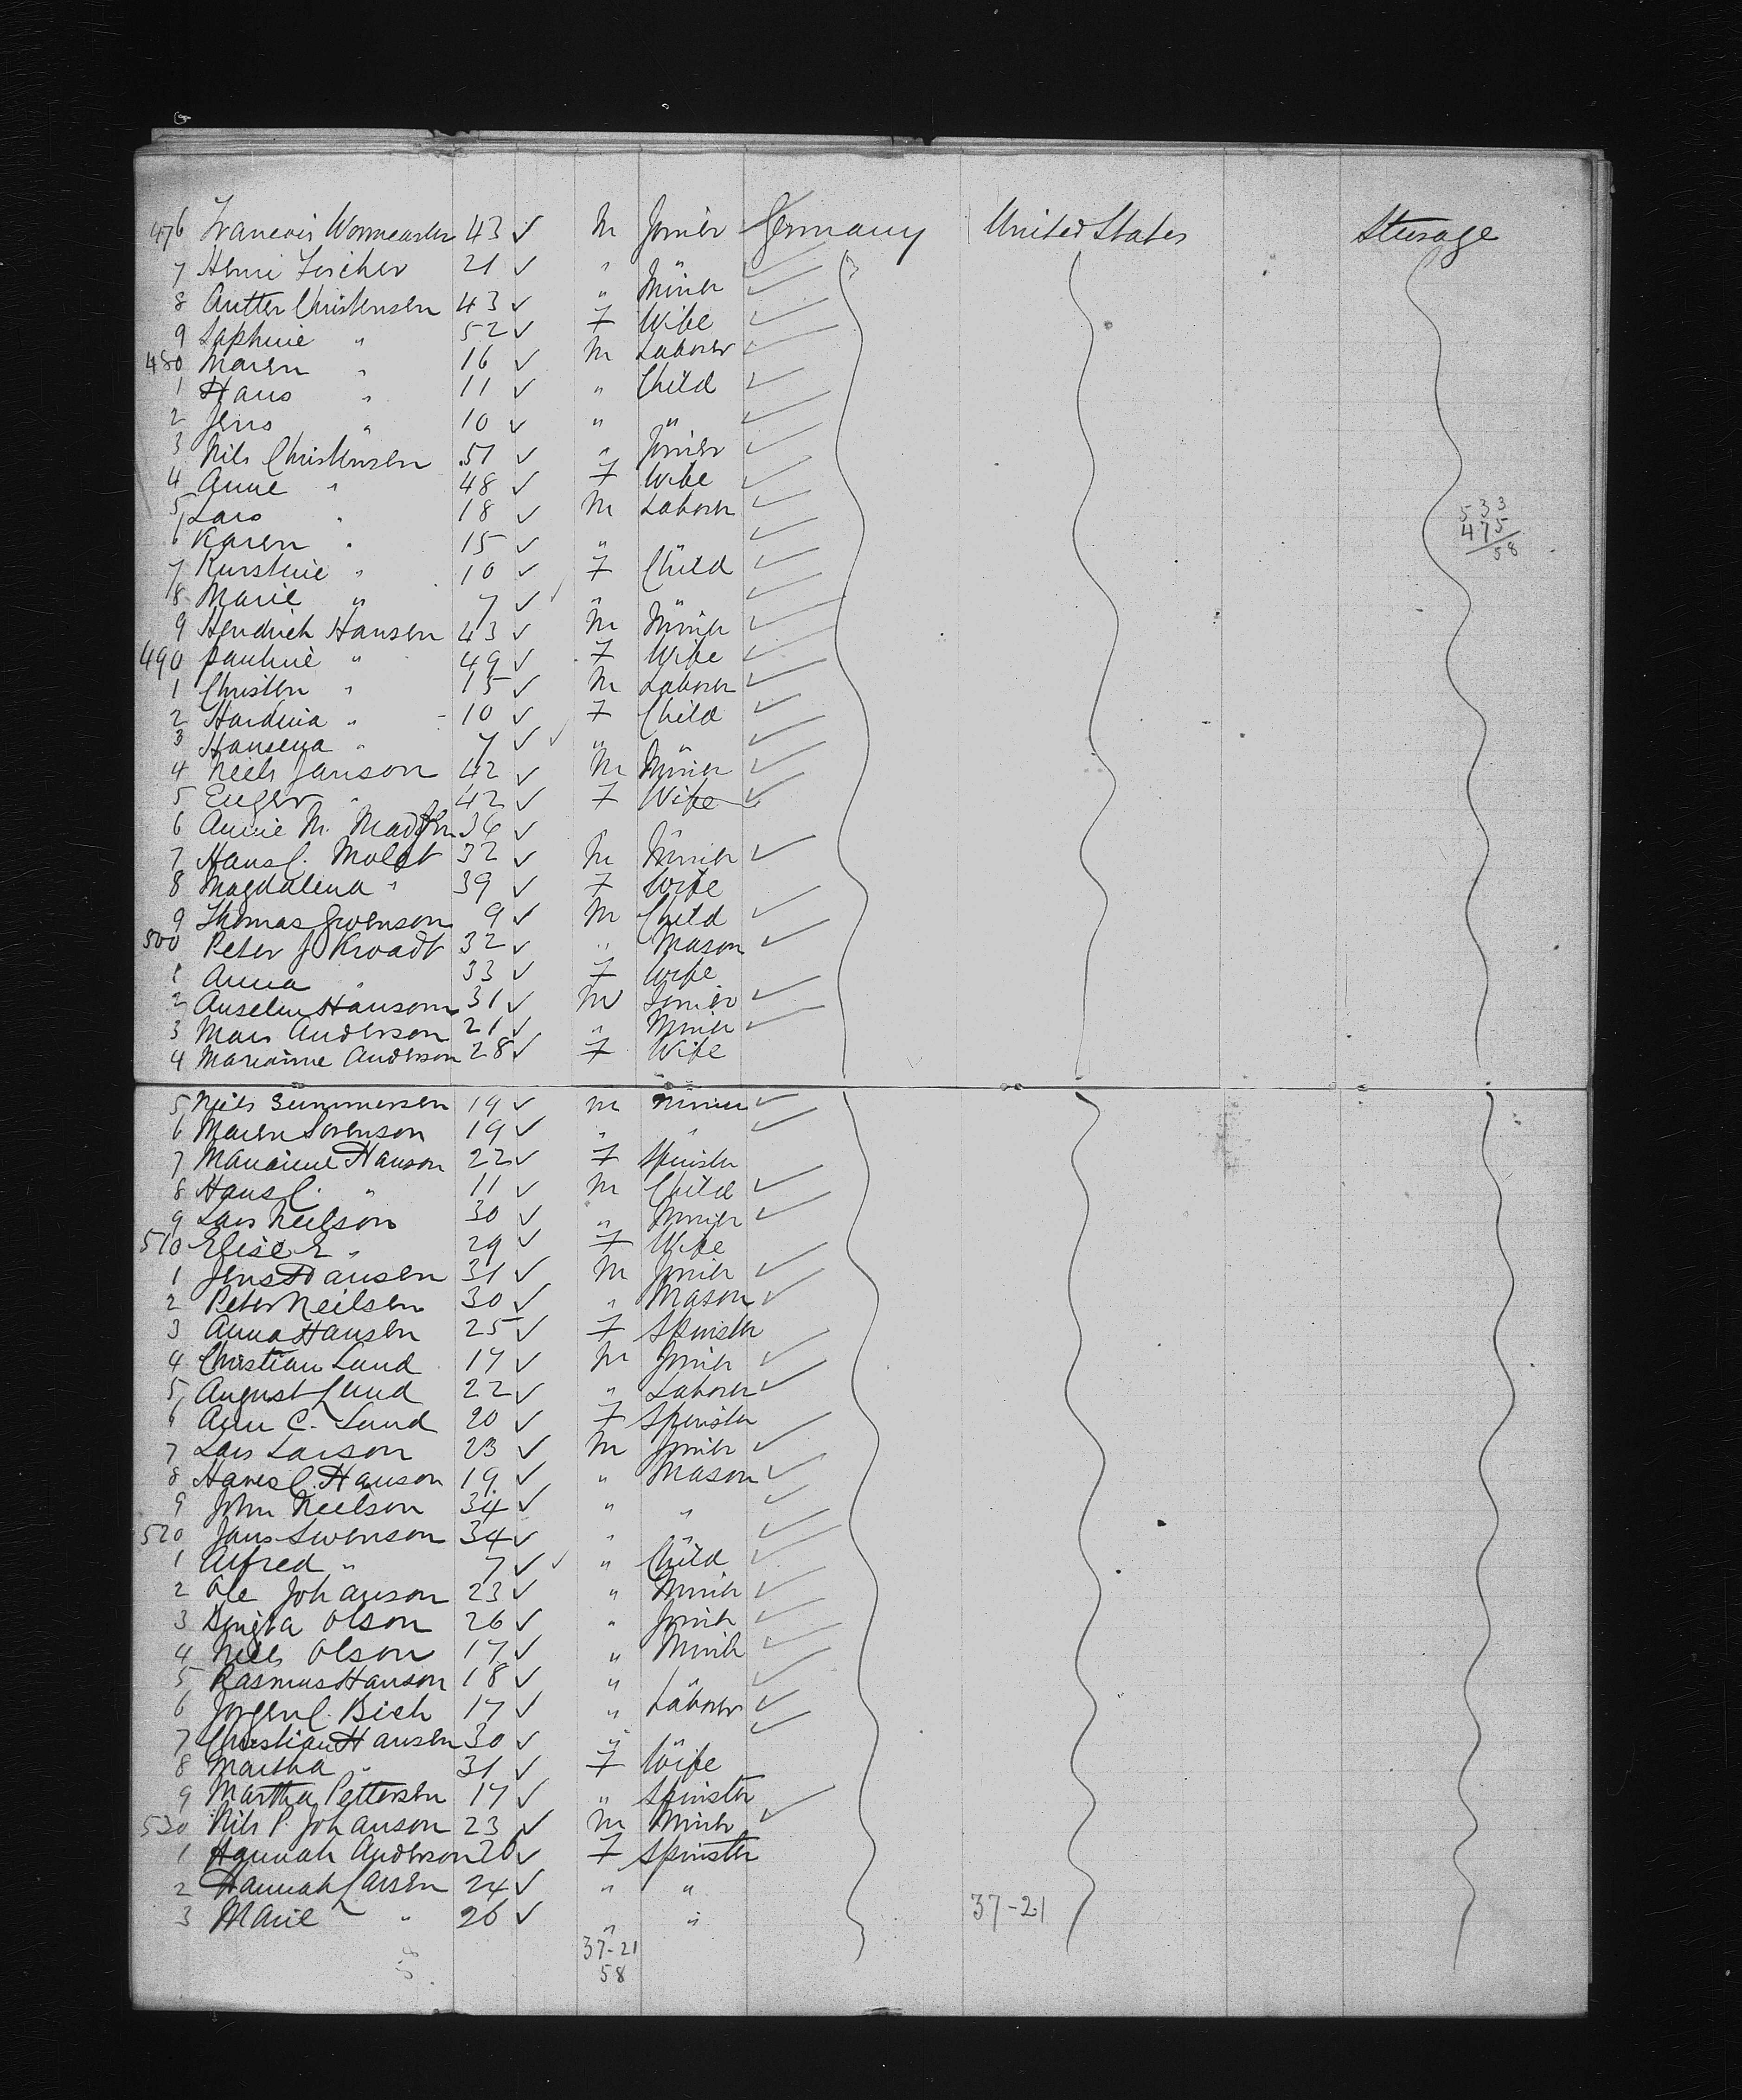 476 43 ✓ M Joiner Germany United States Steerage
7 Henri 21 ✓ " "
8 Christensen 43 ✓ " Miner
9 " 52 ✓ F Wife
480 Maren " 16 ✓ M Laborer
1 Hans " 11 ✓ " Child
2 Jens " 10 ✓ " "
3 Nils Christensen 51 ✓ " Joiner
4 Anne " 48 ✓ F Wife
5 Lars " 18 ✓ M Laborer
6 Karen " 15 ✓ " "
7 " 10 ✓ F Child
8 Marie " 7 ✓ " "
9 Hendrich Hansen 43 ✓ M Miner
490 Pauline " 49 ✓ F Wife
1 Christen " 15 ✓ M Laborer
2 " 10 ✓ F Child
3 Hansena " 7 ✓ " "
4 Neils Janson 42 ✓ M Miner
5 " 42 ✓ F Wife
6 Annie M. 36 ✓
7 Hans C. 32 ✓ M Miner
8 Magdalena " 39 ✓ F Wife
9 Thomas Swenson 9 ✓ M Child
500 Peter J 32 ✓ " Mason
1 Anna " 33 ✓ F Wife
2 Hansom 31 ✓ M Joiner
3 Anderson 21 ✓ " Miner
4 Marianne Anderson 28 ✓ F Wife
5 Neils 19 ✓ M Miner
6 Maren Sorenson 19 ✓ " "
7 Marianne Hanson 22 ✓ F Spinster
8 Hans C. " 11 ✓ M Child
9 Lars Neilson 30 ✓ " Miner
510 Elise E " 29 ✓ F Wife
1 Jens Hansen 31 ✓ M Joiner
2 Peter Neilsen 30 ✓ " Mason
3 Anna Hansen 25 ✓ F Spinster
4 Christian Lund 17 ✓ M Joiner
5 August Lund 22 ✓ " Laborer
6 Ann C. Lund 20 ✓ F Spinster
7 Lars Larson 23 ✓ M Joiner
8 Hans C. Hanson 19 ✓ " Mason
9 John Neilson 34 ✓ " "
520 Jans Swenson 34 ✓ " "
1 Alfred " 7 ✓ " Child
2 Ole Johanson 23 ✓ " Miner
3 Olson 26 ✓ " Joiner
4 Neils Olson 17 ✓ " Miner
5 Rasmus Hanson 18 ✓ " "
6 Jorgen C. 17 ✓ " Laborer
7 Christian Hansen 30 ✓ " "
8 Martha " 31 ✓ F Wife
9 Martha Pettersen 17 ✓ " Spinster
530 Nils P. Johanson 23 ✓ M Miner
1 Hannah Anderson 20 ✓ F Spinster
2 Hannah Larsen 24 ✓ " "
3 Marie " 26 ✓ " "
533
475
58
37-21
37-21
58
58